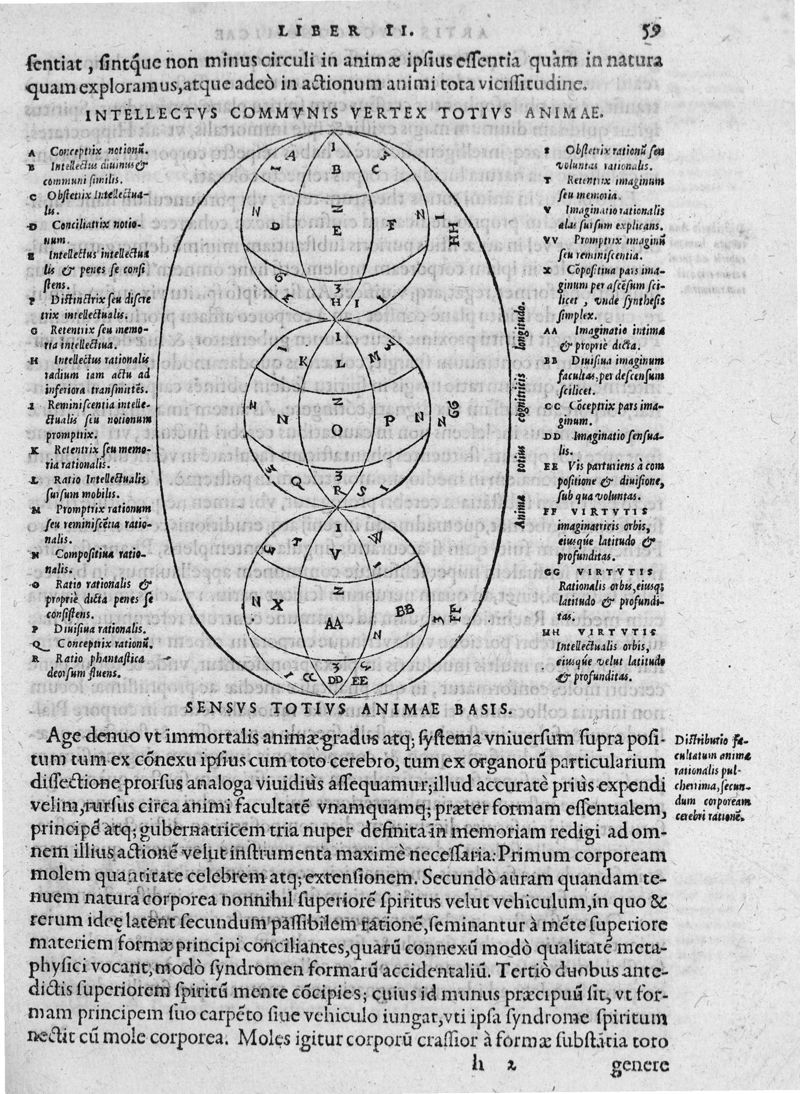 LIBER II. 59
sentiat, sintq́ue non minus circuli in animæ ipsius essentia quàm in natura
quam exploramus, atque adeò in actionum animi tota vicissitudine.
INTELLECTVS COMMVNIS VERTEX TOTIVS ANIMAE.
A Conceptrix notionũ.
B Intellectus diuinus &
communi similis.
C Obstetrix Intellectua-
lis.
D Conciliatrix notio-
num.
E Intellectus intellectua
lis & penes se consi
stens.
F Distinctrix seu discre
trix intellectualis.
G Retentrix seu memo-
ria intellectiua.
H Intellectus rationalis
radium iam actu ad
inferiora transmittẽs.
I Reminiscentia intelle-
ctualis seu notionum
promptrix.
K Retentrix seu memo-
ria rationalis.
L Ratio Intellectualis
sursum mobilis.
M Promptrix rationum
seu reminiscẽtia ratio-
nalis.
N Compositiua ratio-
nalis.
O Ratio rationalis &
propriè dicta penes se
consistens.
P Diuisiua rationalis.
Q Conceptrix rationũ.
R Ratio phantastica
deorsum fluens.
A 1 3
1 B C
N 2 N I HH
D E F
G 3
H I 1
1
1 K L M 3
N 2 N N GG
N O P
3 Q 3
R S 1
1
T 1 W
V 1
N X 2 BB 3 FF
AA N
1 CC 3
DD EE
Animæ totius cognitricis longitudo.
S Obstetrix rationũ seu
voluntas rationalis.
T Retentrix imaginum
seu memoria.
V Imaginatio rationalis
alas sursum explicans.
VV Promptrix imaginũ
seu reminiscentia.
X Cõpositiua pars ima-
ginum per ascẽsum sci-
licet, vnde synthesis
simplex.
AA Imaginatio intima
& propriè dicta.
BB Diuisiua imaginum
facultas, per descensum
scilicet.
CC Cõceptrix pars ima-
ginum.
DD Imaginatio sensua-
lis.
EE Vis parturiens à com
positione & diuisione,
sub qua voluntas.
FF VIRTVTIS
imaginatricis orbis,
eiusq́ue latitudo &
profunditas.
GG VIRTVTIS
Rationalis orbis, eiusq;
latitudo & profundi-
tas.
HH VIRTVTIS
Intellectualis orbis,
eiusque velut latitudo
& profunditas.
SENSVS TOTIVS ANIMAE BASIS.
Age denuo vt immortalis animæ gradus atq; systema vniuersum supra posi-
tum tum ex cõnexu ipsius cum toto cerebro, tum ex organorũ particularium
dissectione prorsus analoga viuidiùs assequamur; illud accuratè priùs expendi
velim, rursus circa animi facultatẽ vnamquamq; præter formam essentialem,
principẽ atq; gubernatricem tria nuper definita in memoriam redigi ad om-
nem illius actionẽ velut instrumenta maximè necessaria: Primum corpoream
molem quantitate celebrem atq; extensionem. Secundò auram quandam te-
nuem natura corporea nonnihil superiorẽ spiritus velut vehiculum, in quo &
rerum ideę latent secundum passibilem rationẽ, seminantur à mẽte superiore
materiem formæ principi conciliantes, quarũ connexũ modò qualitatẽ meta-
physici vocant, modò syndromen formarũ accidentaliũ. Tertiò duobus ante-
dictis superiorem spiritũ mente cõcipies; cuius id munus præcipuũ sit, vt for-
mam principem suo carpẽto siue vehiculo iungat, vti ipsa syndrome spiritum
nectit cũ mole corporea. Moles igitur corporũ crassior à formæ substãtia toto
h 2 genere
Distributio fa-
cultatum animæ
rationalis pul-
cherrima, secun-
dum corpoream
cerebri rationẽ.